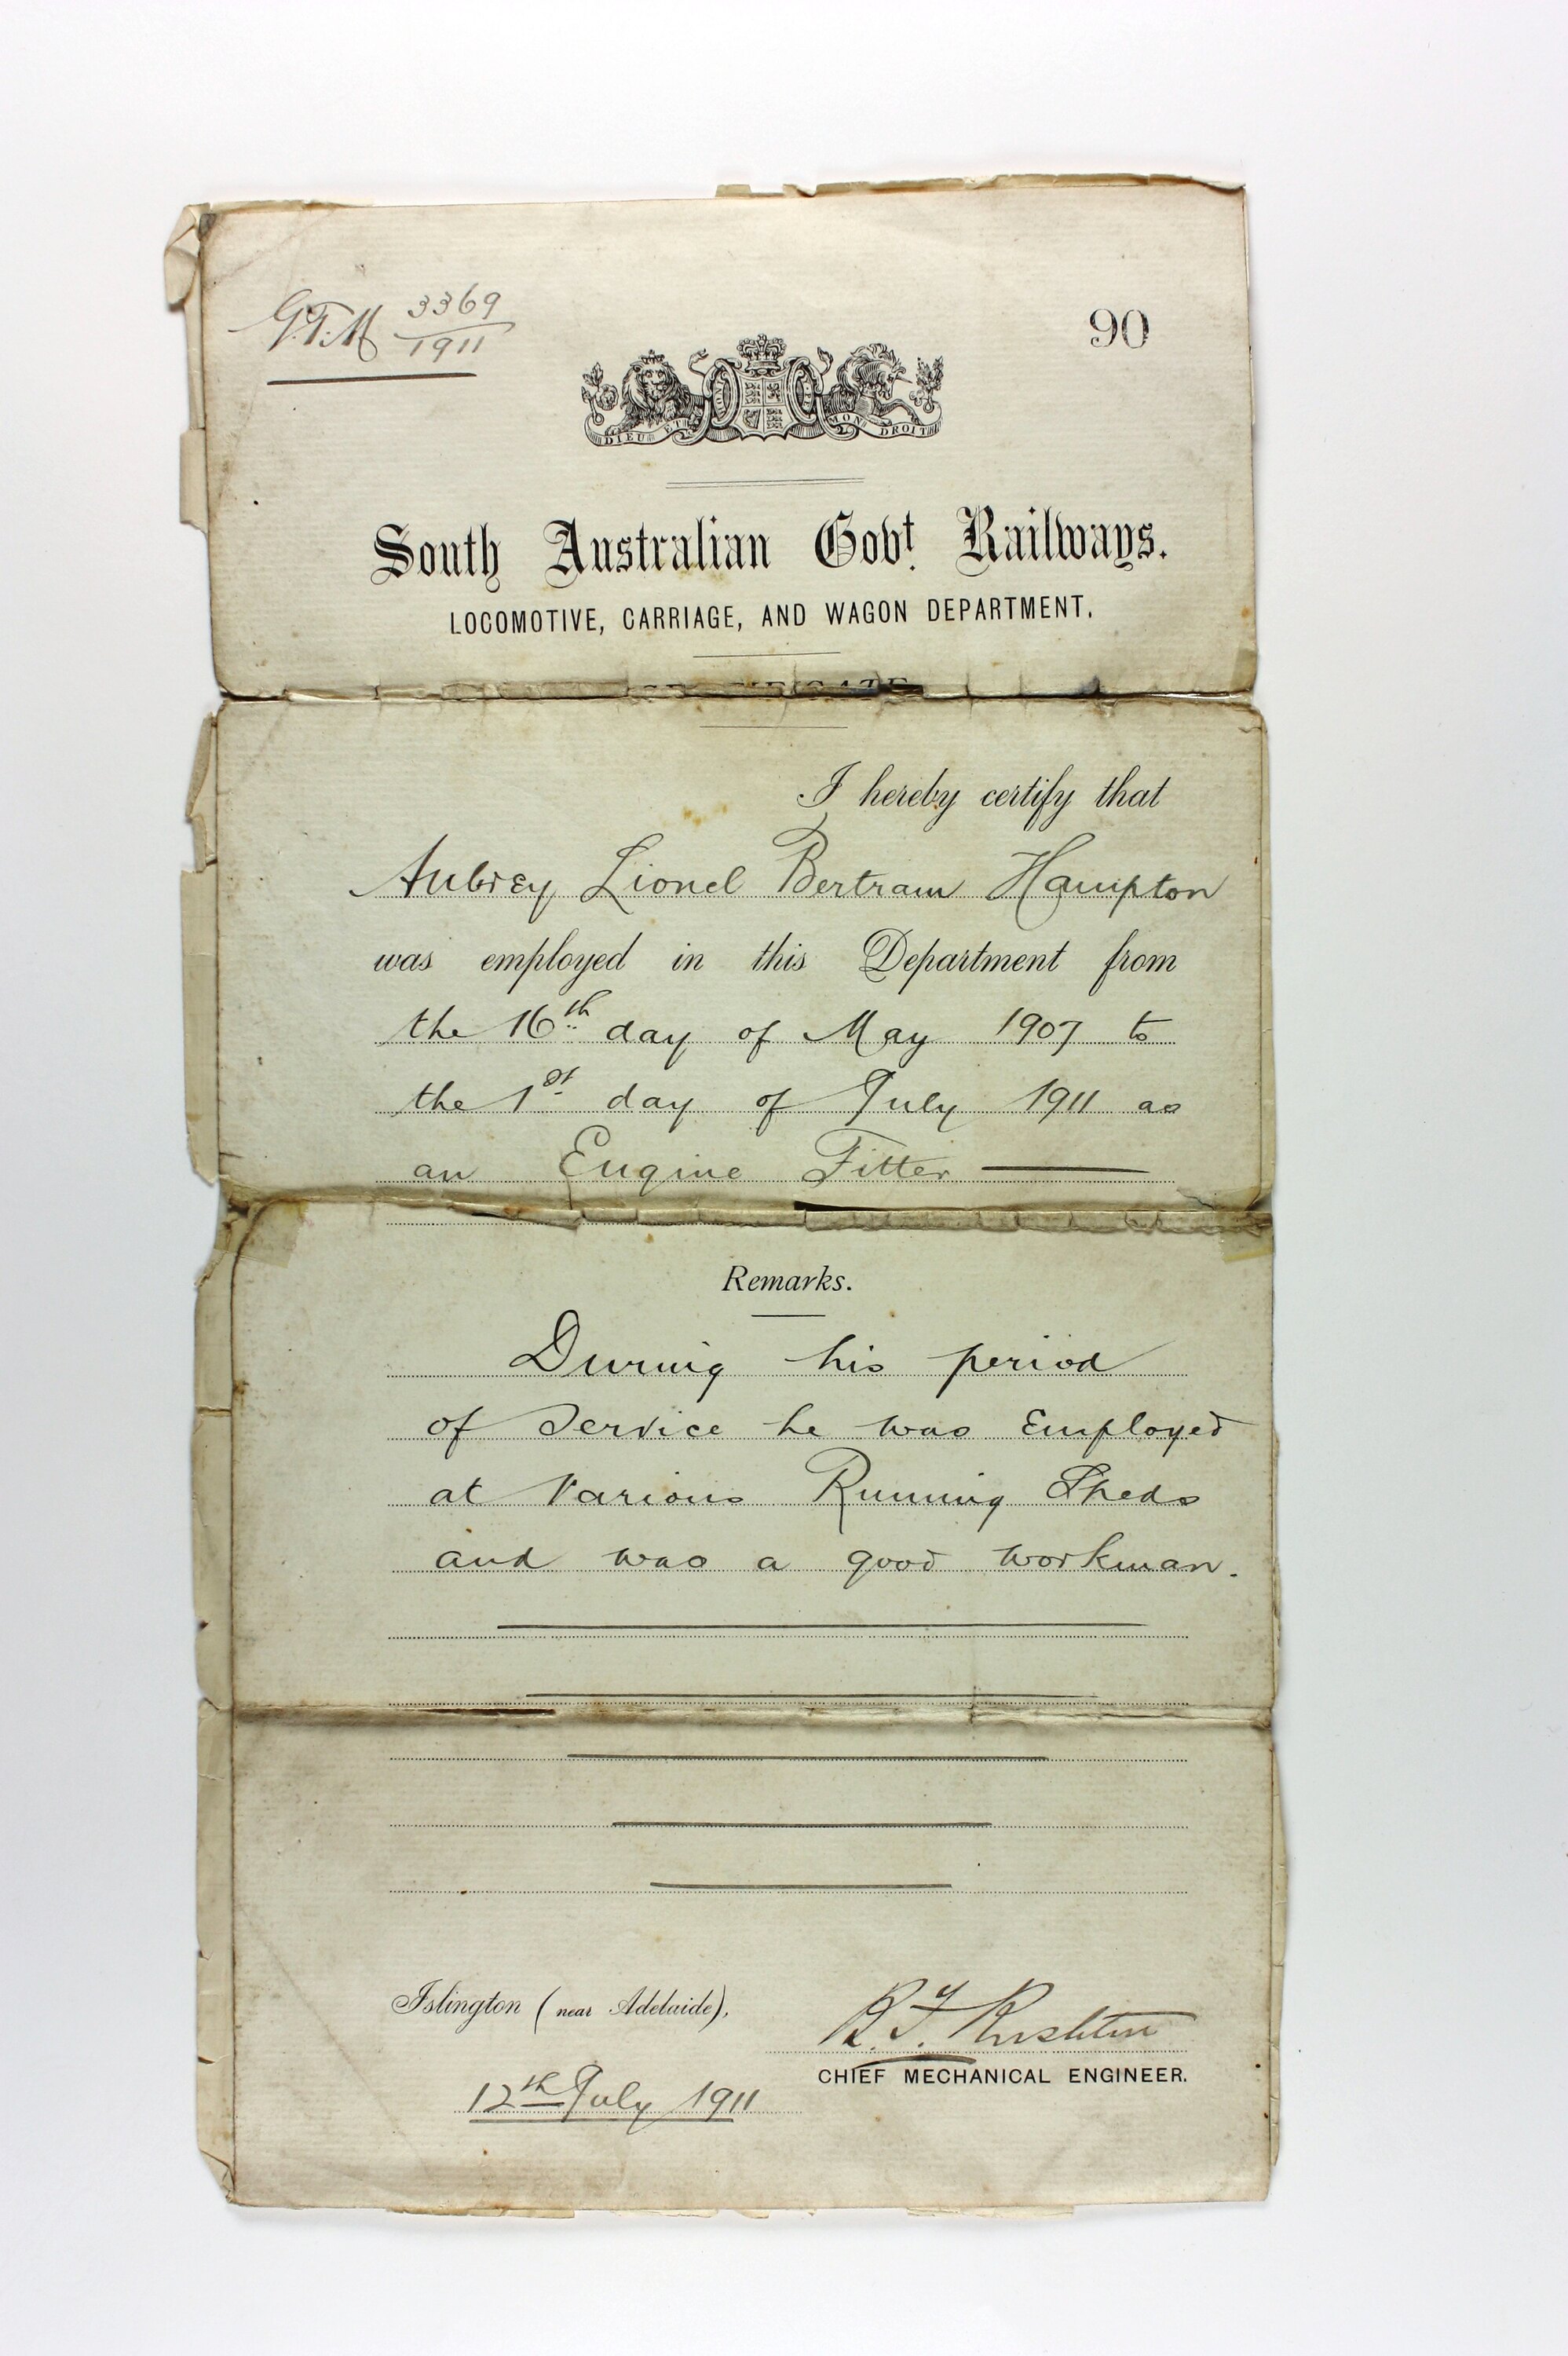 G.T.M 3369
1911
90
DIEU ET MON DROIT
South Australian Govt. Railways.
LOCOMOTIVE, CARRIAGE, AND WAGON DEPARTMENT.
I hereby certify that
Aubrey Lionel Bertram Hampton
was employed in this Department from
the 16th day of May 1907 to
the 1st day of July 1911 as
an Engine Fitter
Remarks.
During his period
of Service he was Employed
at Various Running Sheds
and was a good workman.
Islington (near Adelaide),
R. F. Rushton
CHIEF MECHANICAL ENGINEER.
12th July 1911